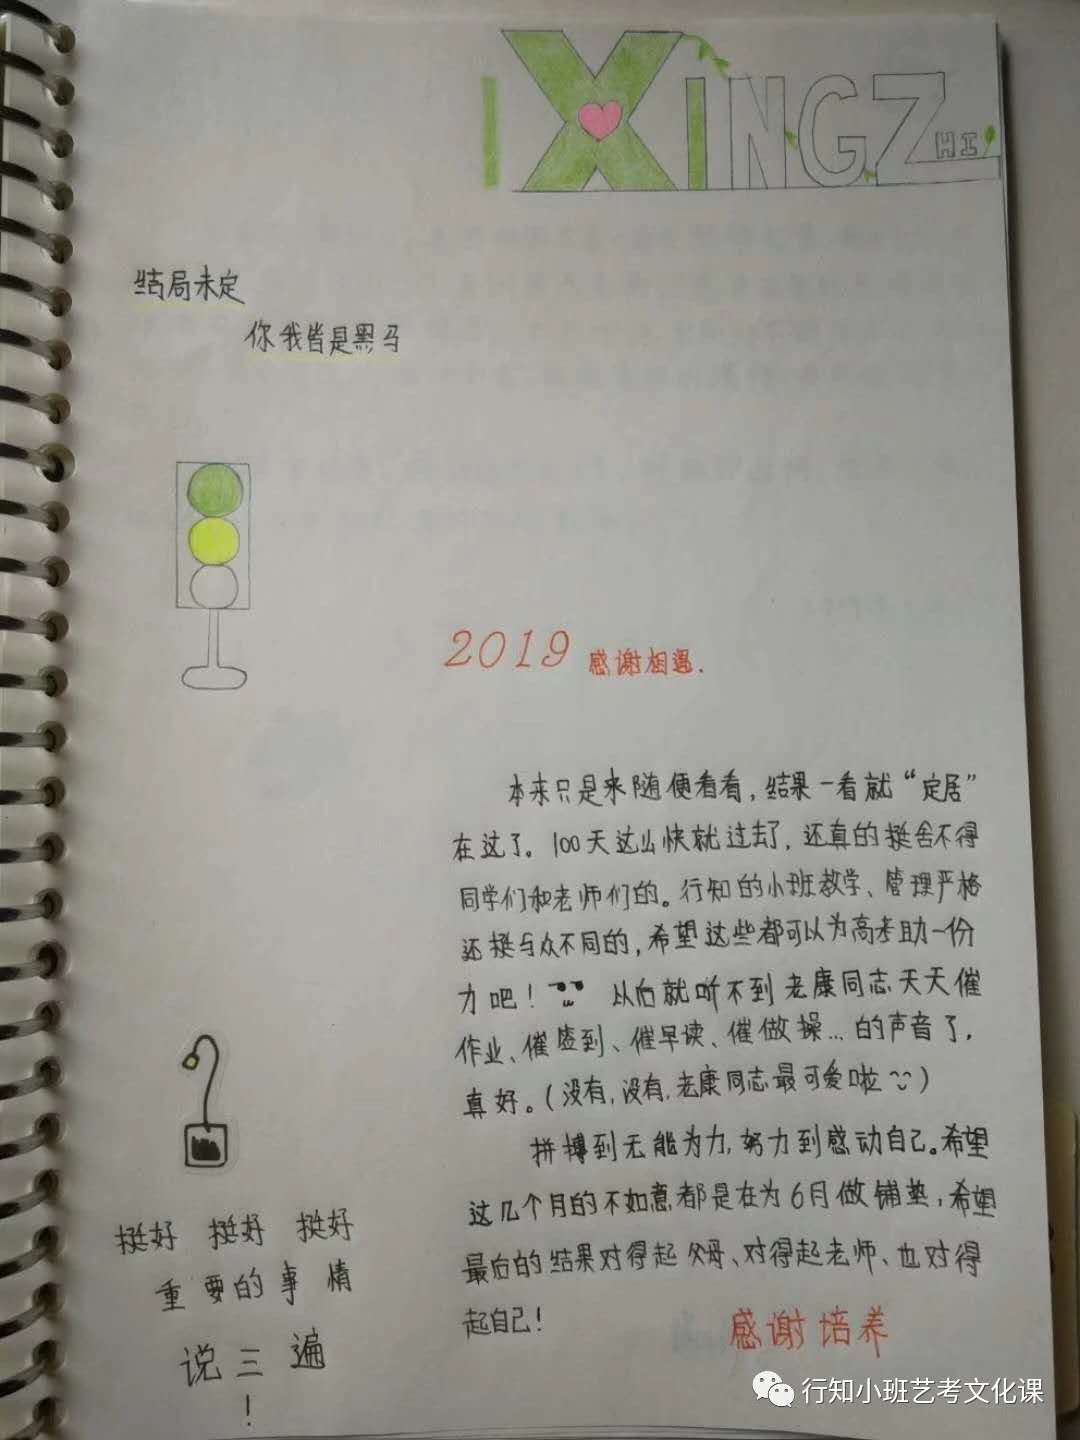 XINGZHI
结局未定
你我皆是黑马
2019 感谢相遇.
本来只是来随便看看，结果一看就“定居”
在这了。100天这么快就过去了，还真的挺舍不得
同学们和老师们的。行知的小班教学、管理严格
还挺与众不同的，希望这些都可以为高考助一份
力吧！ 以后就听不到老康同志天天催
作业、催签到、催早读、催做操...的声音了，
真好。(没有，没有，老康同志最可爱啦~)
拼搏到无能为力，努力到感动自己。希望
这几个月的不如意都是在为6月做铺垫，希望
最后的结果对得起父母、对得起老师、也对得
起自己！
感谢培养
挺好 挺好 挺好
重要的事情
说三遍
！
行知小班艺考文化课